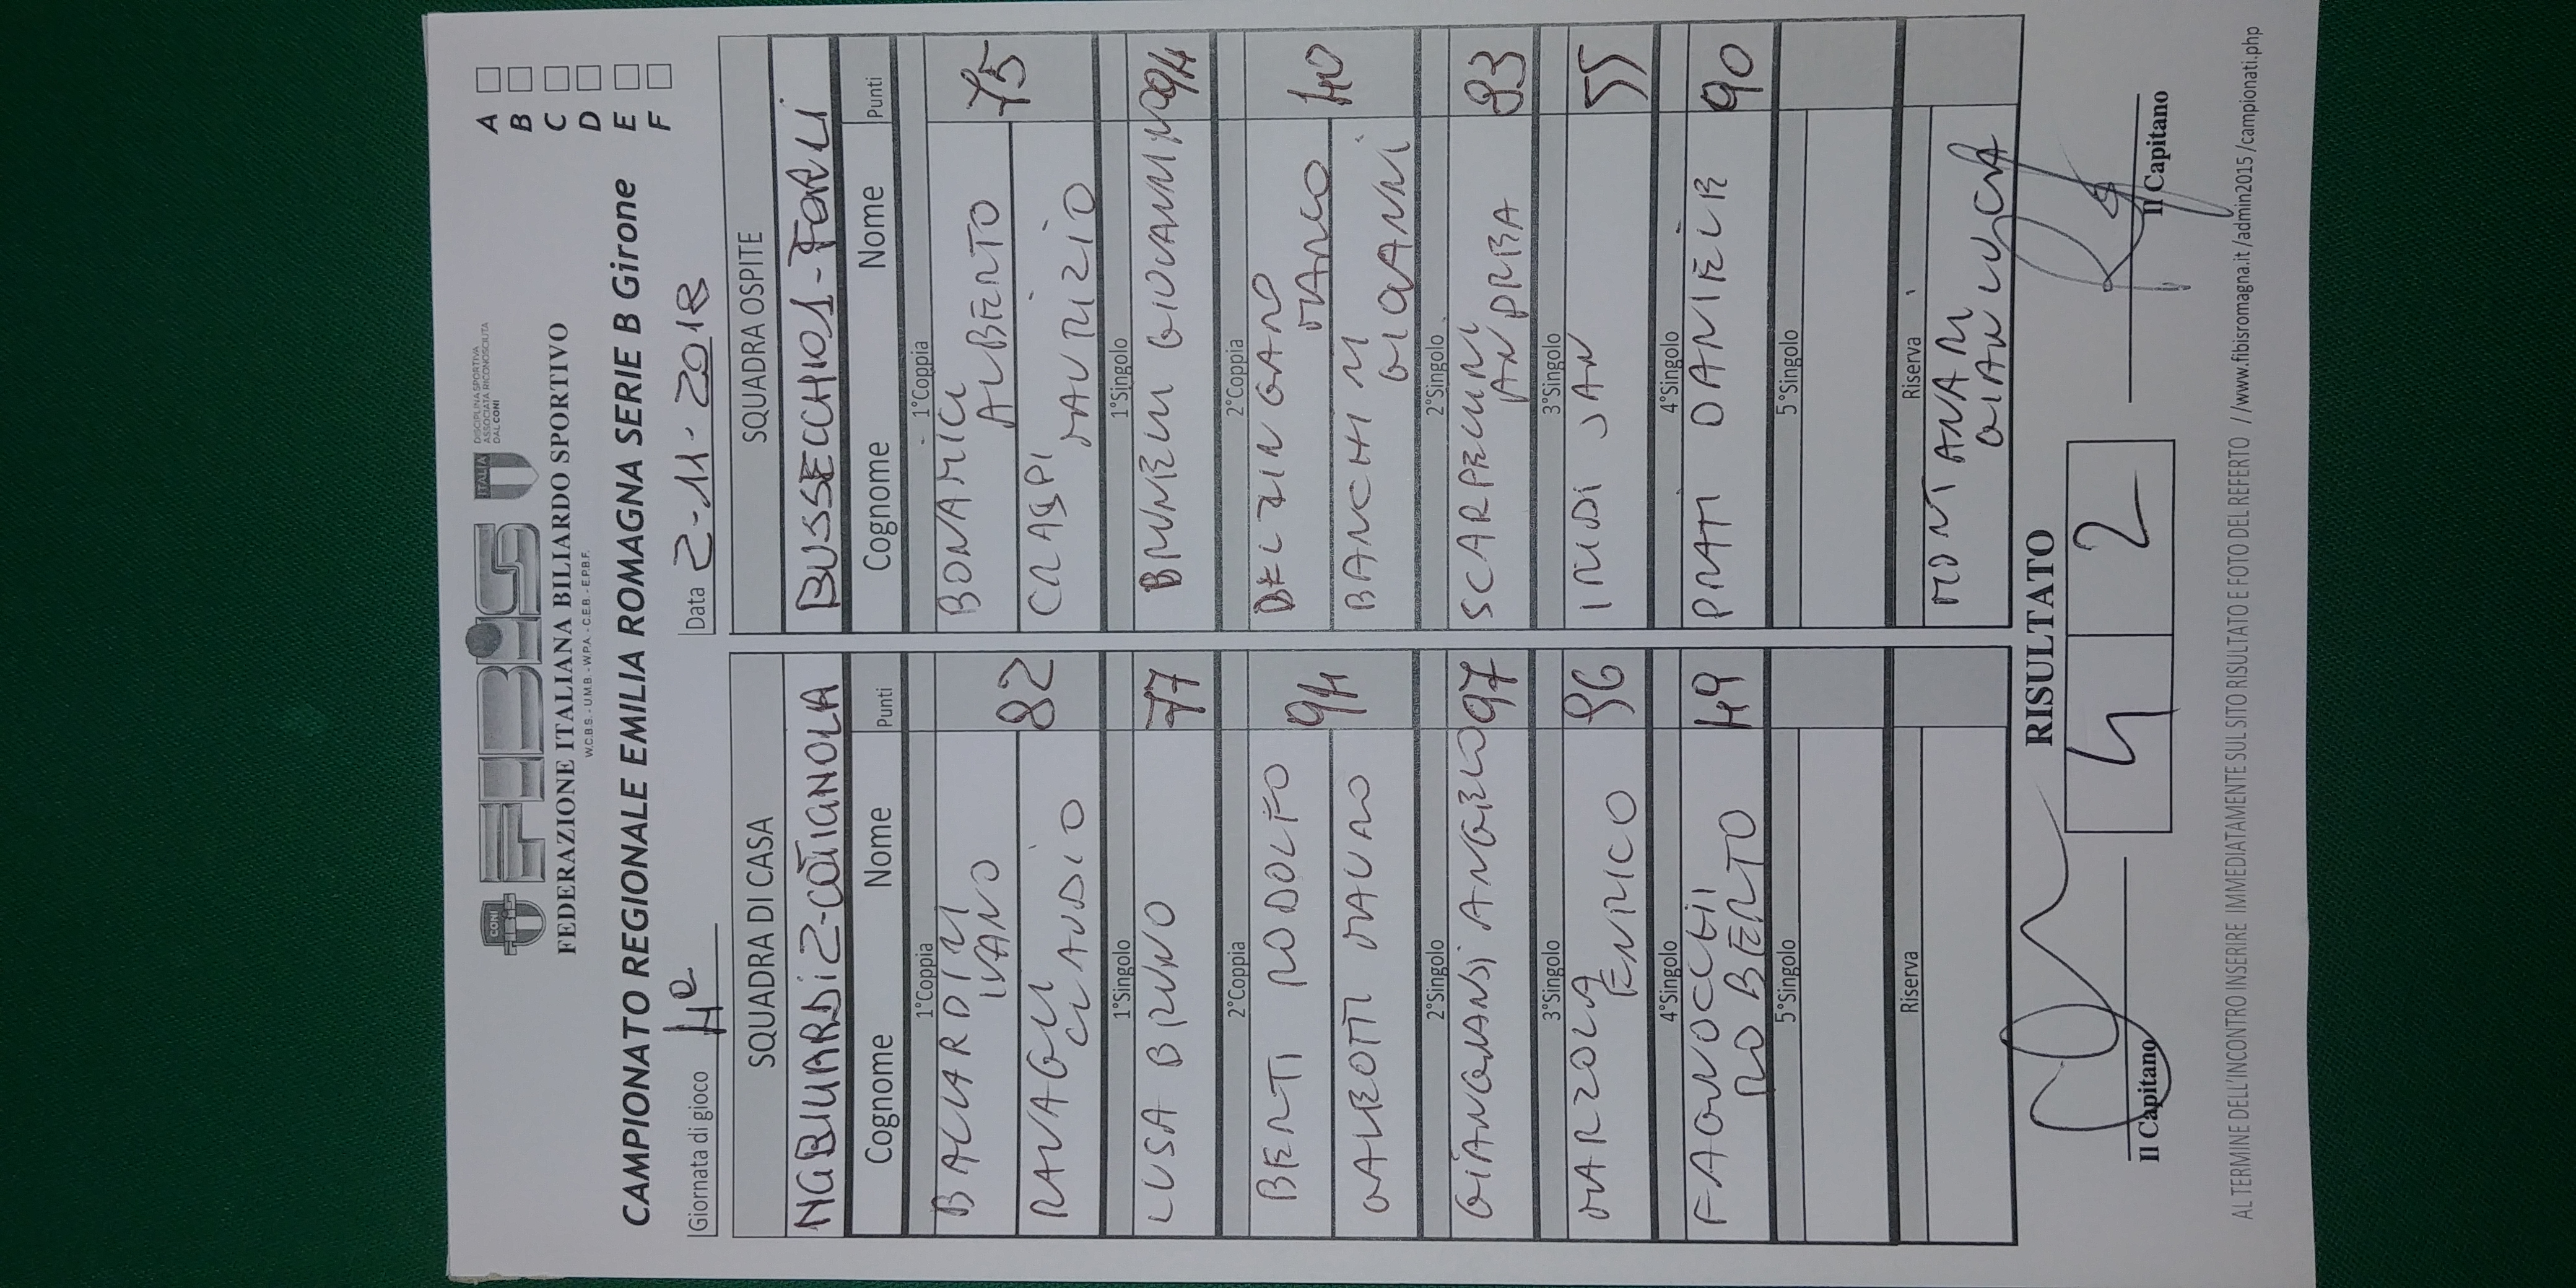 CONI
FIBiS
ITALIA
DISCIPLINA SPORTIVA
ASSOCIATA RICONOSCIUTA
DAL CONI
FEDERAZIONE ITALIANA BILIARDO SPORTIVO
W.C.B.S. - U.M.B. - W.P.A. - C.E.B. - E.P.B.F.
CAMPIONATO REGIONALE EMILIA ROMAGNA SERIE B Girone
A
B
C
D
E
F
Giornata di gioco 4ª
Data 2-11-2018
SQUADRA DI CASA
NGBILIARDi2-COTIGNOLA
Cognome Nome Punti
1°Coppia
BALLARDINI
IVANO
RAVAGLI
CLAUDIO
82
1°Singolo
LUSA BRUNO 77
2°Coppia
BERTI RODOLFO
GALEOTTI MAURO
94
2°Singolo
GIANGRANDI ANGELO 97
3°Singolo
MARZOLA
ENRICO
96
4°Singolo
FAGNOCCHI
ROBERTO
49
5°Singolo
Riserva
SQUADRA OSPITE
BUSSECCHIO1-FORLI
Cognome Nome Punti
1°Coppia
BONAMICI
ALBERTO
CRASPI
MAURIZIO
75
1°Singolo
BRUNELLI GIOVANNI 94
2°Coppia
MARCO
BIANCHINI
GIOVANNI
40
2°Singolo
SCARPELLINI
ANDREA
93
3°Singolo
JAN
55
4°Singolo
PRATI DANIELE 90
5°Singolo
Riserva
MONTANARI
GIANLUCA
RISULTATO
4 2
Il Capitano
Il Capitano
AL TERMINE DELL'INCONTRO INSERIRE IMMEDIATAMENTE SUL SITO RISULTATO E FOTO DEL REFERTO //www.fibisromagna.it /admin2015 /campionati.php